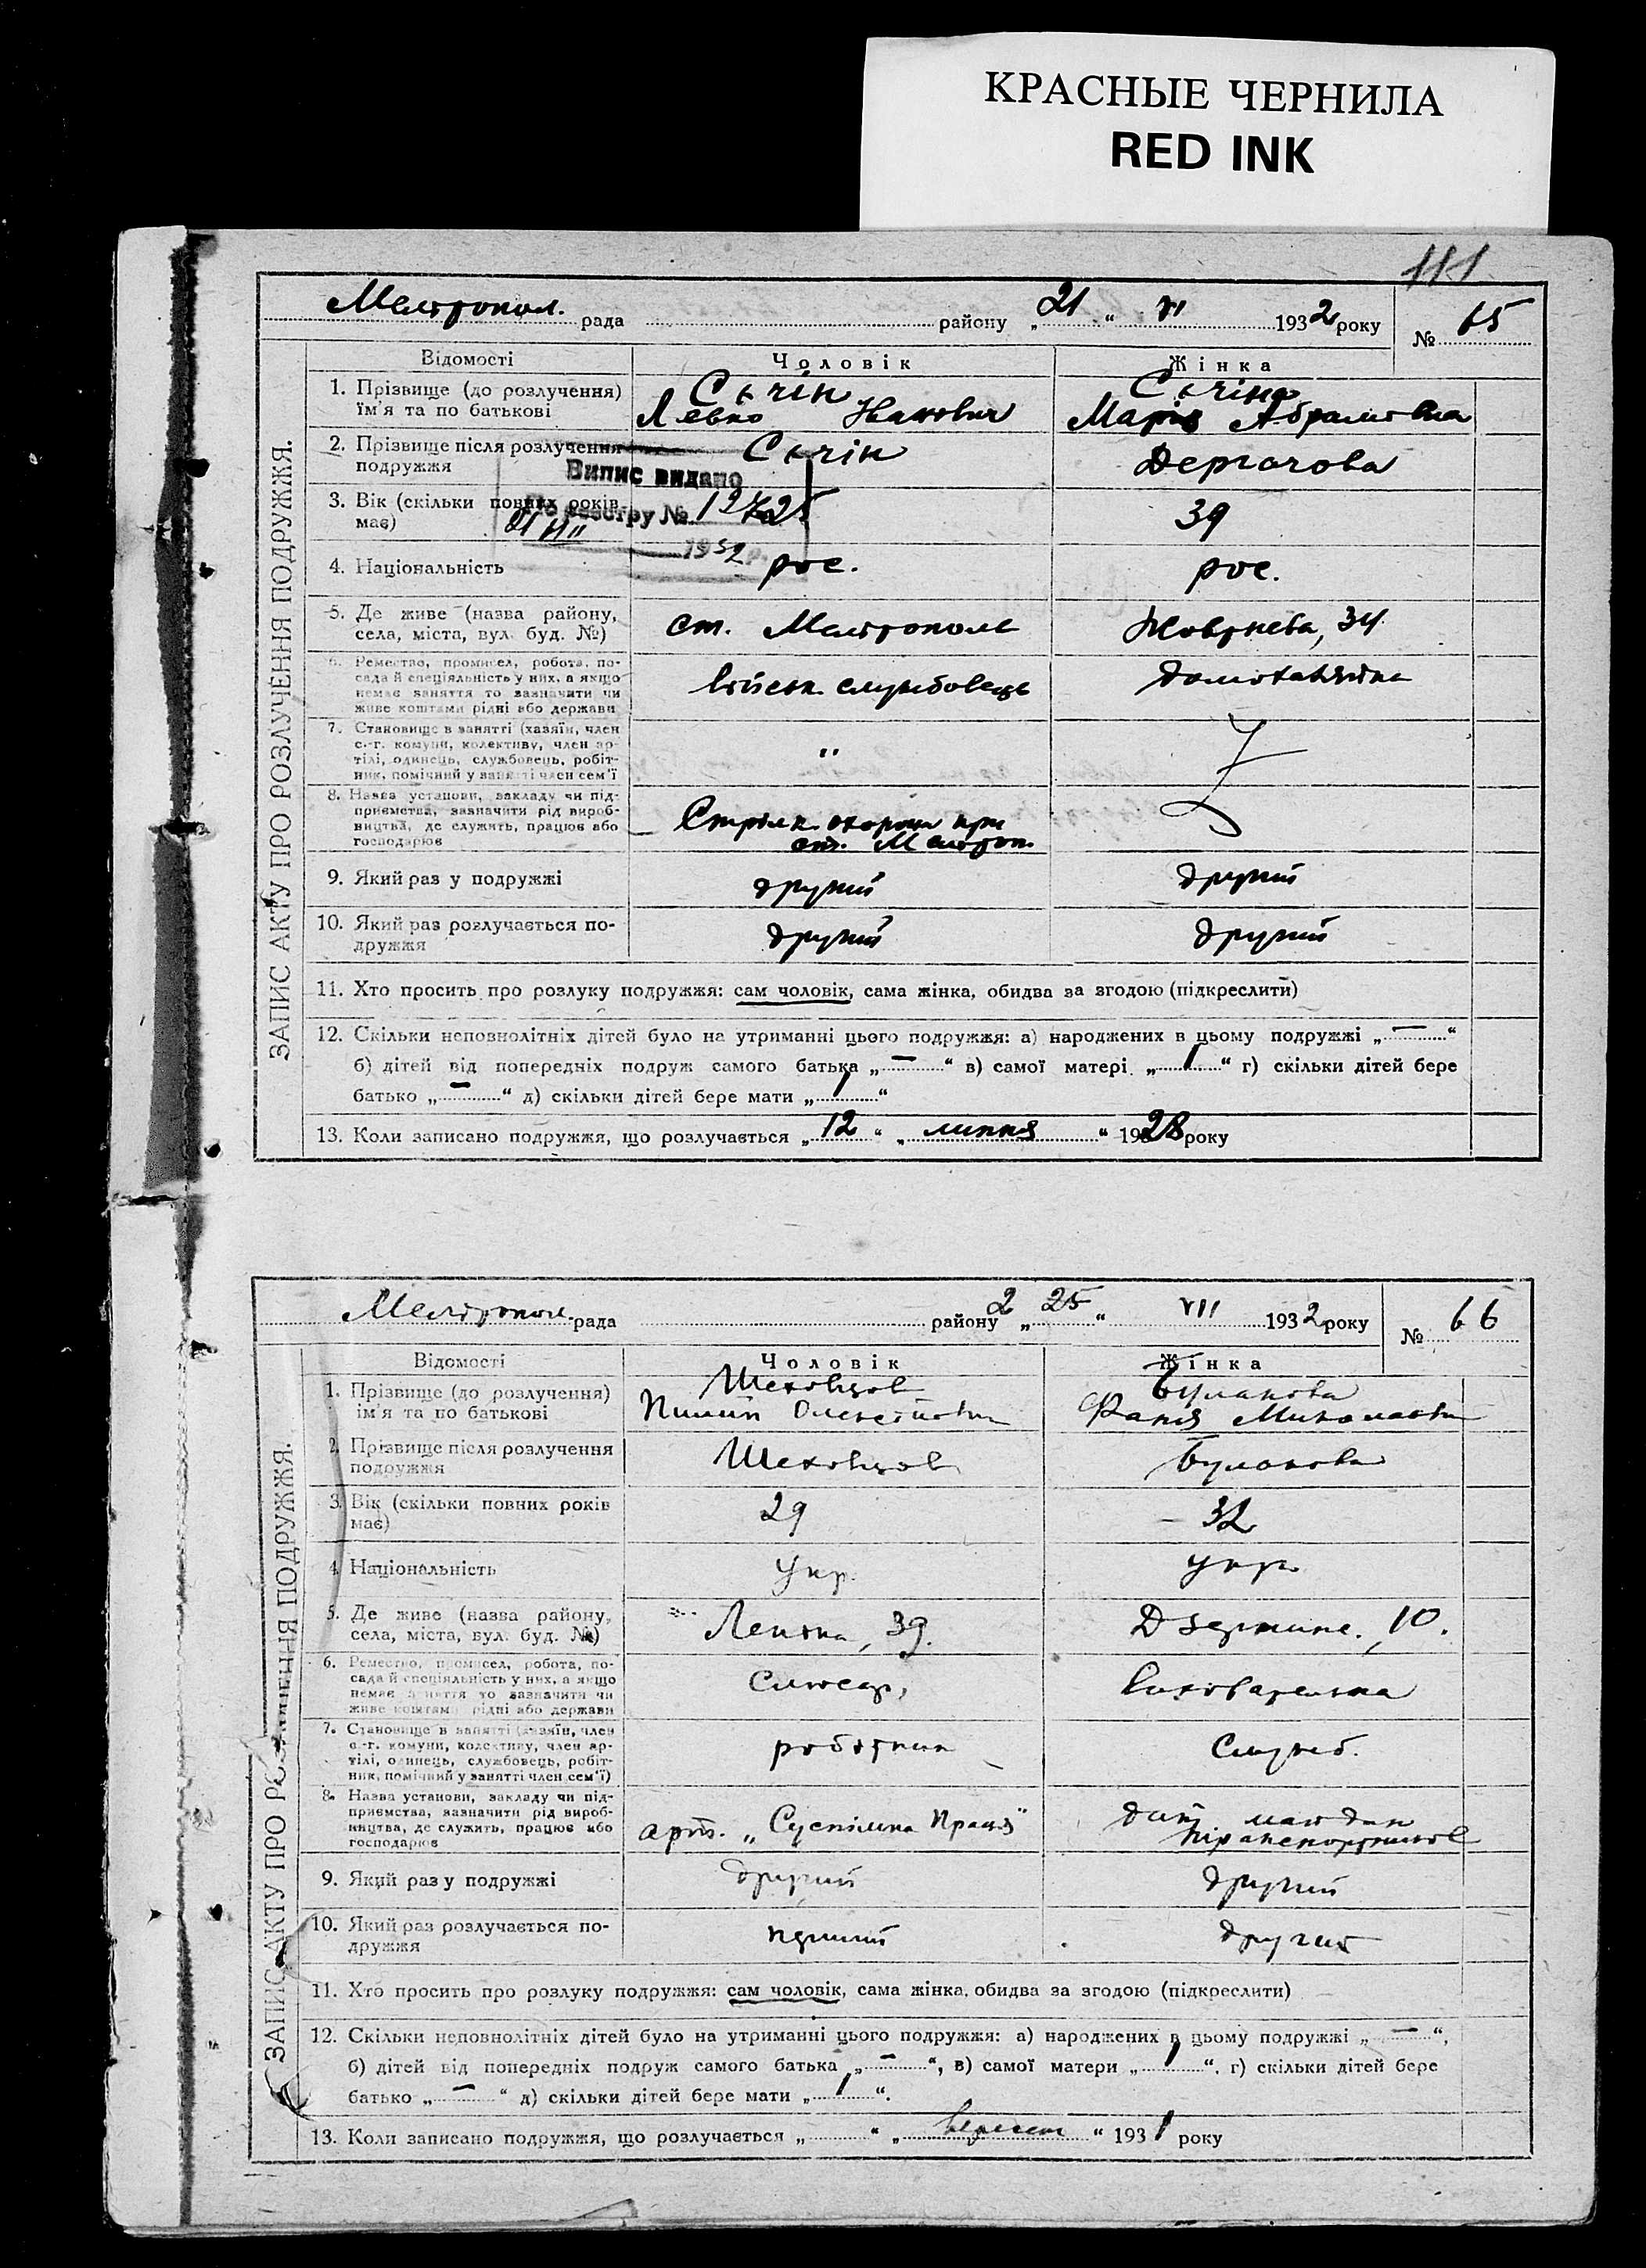 КРАСНЫЕ ЧЕРНИЛА
RED INK
111
Мелітопол. рада району „21“ VI 1932 року № 65
ЗАПИС АКТУ ПРО РОЗЛУЧЕННЯ ПОДРУЖЖЯ.
Відомості Чоловік Жінка
1. Прізвище (до розлучення) ім'я та по батькові
Левко Іванович
Марія Абрамовна
2. Прізвище після розлучення подружжя
Дергачова
Випис видано
По реєстру №
1932 р.
3. Вік (скільки повних років має) 39
4. Національність рос. рос.
5. Де живе (назва району, села, міста, вул. буд. №) ст. Мелітополь Жовтнева, 34
6. Ремество, промисел, робота, посада й спеціяльність у них, а якщо немає заняття то зазначити чи живе коштами рідні або держави
військ. службовець домохазяйка
7. Становище в занятті (хазяїн, член с.-г. комуни, колективу, член артілі, одинець, службовець, робітник, помічний у занятті член сем'ї
"
8. Назва установи, закладу чи підприємства, зазначити рід виробництва, де служить, працює або господарює
Стрілк. охорони при
ст. Мелітоп.
9. Який раз у подружжі другий другий
10. Який раз розлучається подружжя другий другий
11. Хто просить про розлуку подружжя: сам чоловік, сама жінка, обидва за згодою (підкреслити)
12. Скільки неповнолітніх дітей було на утриманні цього подружжя: а) народжених в цьому подружжі „—“
б) дітей від попередніх подруж самого батька „—“ в) самої матері „1“ г) скільки дітей бере
батько „—“ д) скільки дітей бере мати „1“
13. Коли записано подружжя, що розлучається „12“ „липня“ 1928 року
Мелітопол. рада району „25“ VII 1932 року № 66
ЗАПИС АКТУ ПРО РОЗЛУЧЕННЯ ПОДРУЖЖЯ.
Відомості Чоловік Жінка
1. Прізвище (до розлучення) ім'я та по батькові
Шеховцов Буланова
Пимін Олексійович Фаня Миколаївн
2. Прізвище після розлучення подружжя Шеховцов Буланова
3. Вік (скільки повних років має) 29 32
4. Національність Укр. укр.
5. Де живе (назва району, села, міста, вул. буд. №) Леніна, 39. Дзержинс., 10.
6. Ремество, промисел, робота, посада й спеціяльність у них, а якщо немає заняття то зазначити чи живе коштами рідні або держави
Слюсар, Вихователька
7. Становище в занятті (хазяїн, член с.-г. комуни, колективу, член артілі, одинець, службовець, робітник, помічний у занятті член сем'ї)
робітник Служб.
8. Назва установи, закладу чи підприємства, зазначити рід виробництва, де служить, працює або господарює
арт. „Суспільна Праця“ дит майдан
транспортників
9. Який раз у подружжі другий другий
10. Який раз розлучається подружжя перший другий
11. Хто просить про розлуку подружжя: сам чоловік, сама жінка, обидва за згодою (підкреслити)
12. Скільки неповнолітніх дітей було на утриманні цього подружжя: а) народжених в цьому подружжі „—“,
б) дітей від попередніх подруж самого батька „—“, в) самої матери „1“. г) скільки дітей бере
батько „—“ д) скільки дітей бере мати „1“.
13. Коли записано подружжя, що розлучається „ “ „вересень“ 1931 року